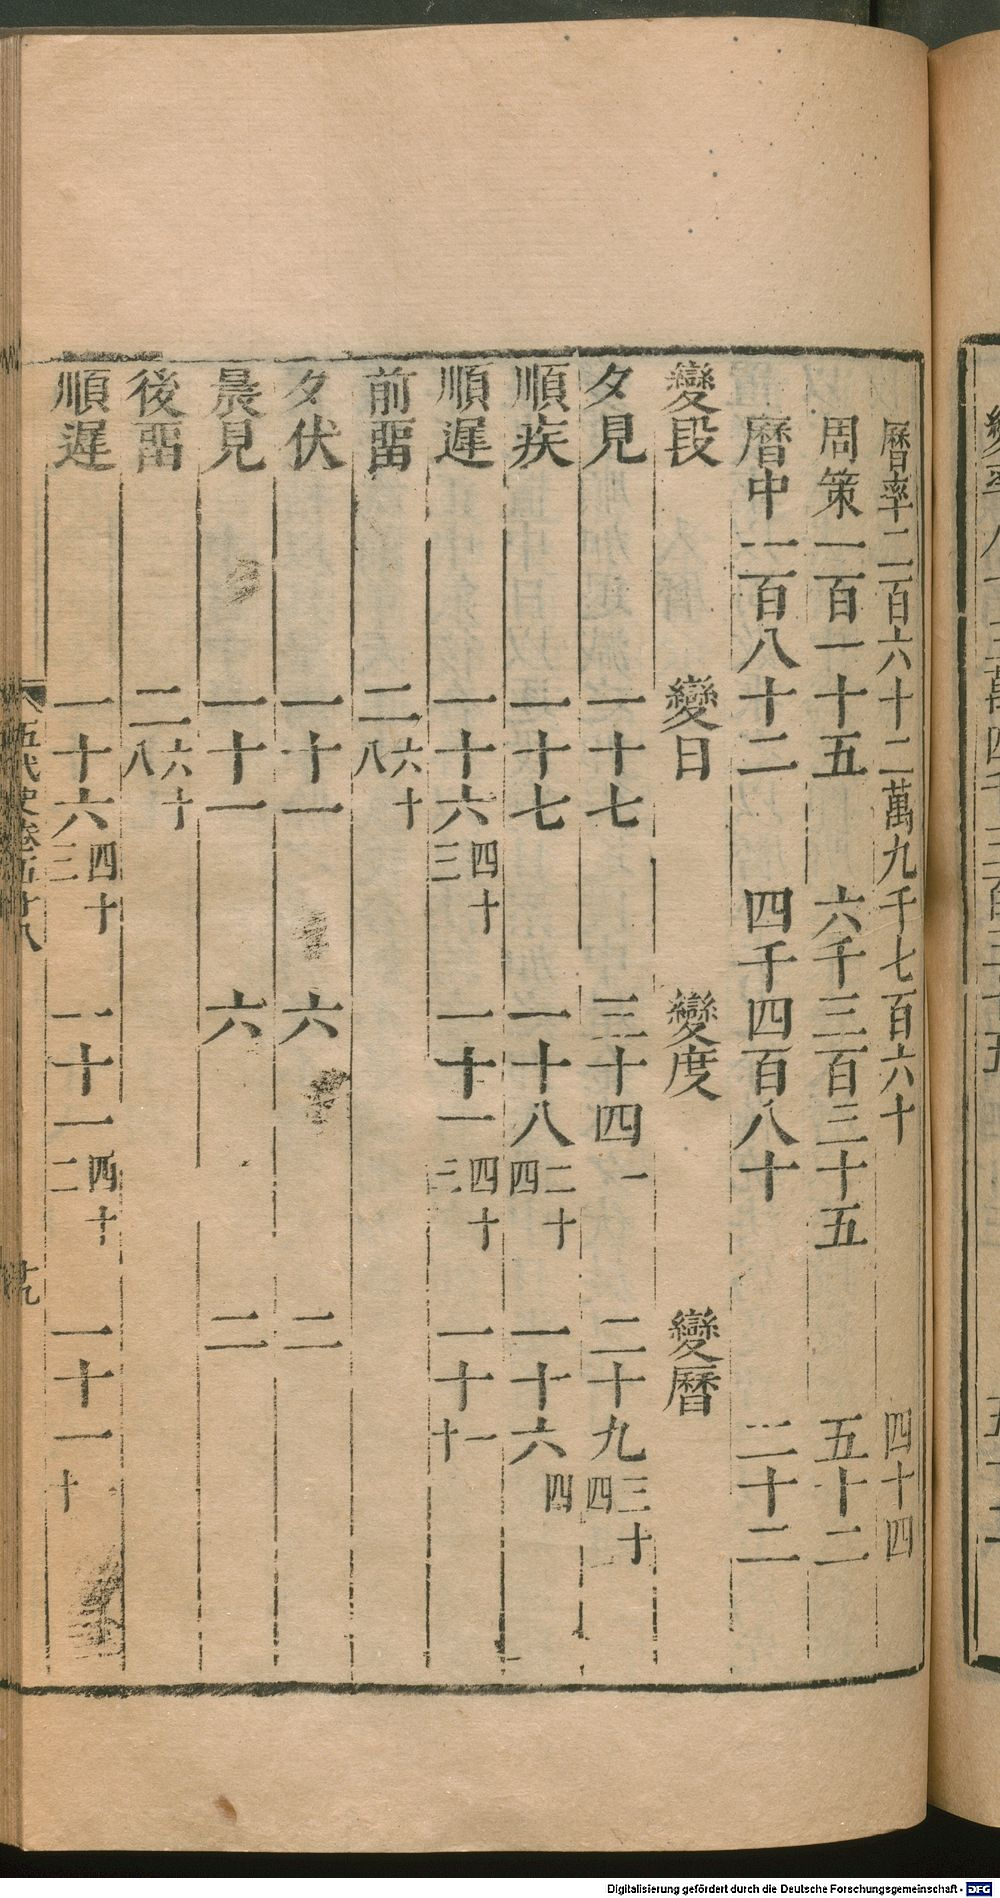 曆率二百六十二萬九千七百六十 四十四
周策一百一十五 六千三百三十五 五十二
曆中一百八十二 四千四百八十 二十二
變段 變日 變度 變曆
夕見 一十七 三十四一 二十九三十四
順疾 一十七 一十八二十四 一十六四
順遲 一十六四十三 一十一四十三 一十一十
前畱 二六十八
夕伏 一十一 六 二
晨見 一十一 六 二
後畱 二六十八
順遲 一十六四十三 一十一四十二 一十一十
五代史卷五十八 十九
Digitalisierung gefördert durch die Deutsche Forschungsgemeinschaft - DFG